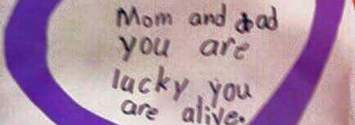 Mom and dad
you are
lucky you
are alive.